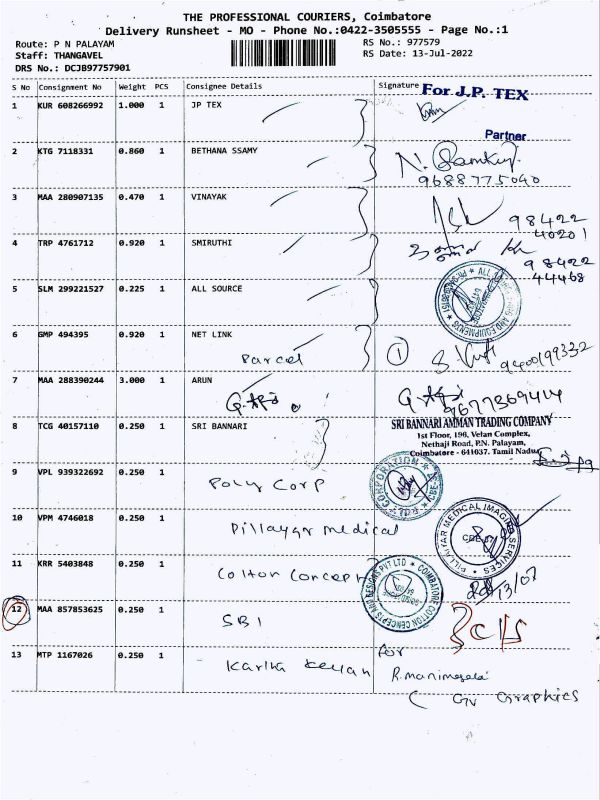 THE PROFESSIONAL COURIERS, Coimbatore
Delivery Runsheet - MO - Phone No.:0422-3505555 - Page No.:1
Route: P N PALAYAM RS No.: 977579
Staff: THANGAVEL RS Date: 13-Jul-2022
DRS No.: DCJB97757901
S No Consignment No Weight PCS Consignee Details Signature
For J.P. TEX
1 KUR 608266992 1.000 1 JP TEX
Partner
2 KTG 7118331 0.860 1 BETHANA SSAMY
9688775040
3 MAA 280907135 0.470 1 VINAYAK
98422
40201
4 TRP 4761712 0.920 1 SMIRUTHI
98422
44468
5 SLM 299221527 0.225 1 ALL SOURCE
6 GMP 494395 0.920 1 NET LINK
Parcel 1 9400199332
7 MAA 288390244 3.000 1 ARUN
9677369414
8 TCG 40157110 0.250 1 SRI BANNARI
SRI BANNARI AMMAN TRADING COMPANY
1st Floor, 196, Velan Complex,
Nethaji Road, P.N. Palayam,
Coimbatore - 641037. Tamil Nadu
9 VPL 939322692 0.250 1
Poly Corp
10 VPM 4746018 0.250 1
Pillayar medical
PILLAYAR MEDICAL IMAGING SERVICES
11 KRR 5403848 0.250 1
Cotton Concept
COIMBATORE COTTON CONCEPTS AND DESIGNS PVT LTD
12 MAA 857853625 0.250 1
SBI
13 MTP 1167026 0.250 1
for
Karthi keyan R. manimegalai
Gv Graphics